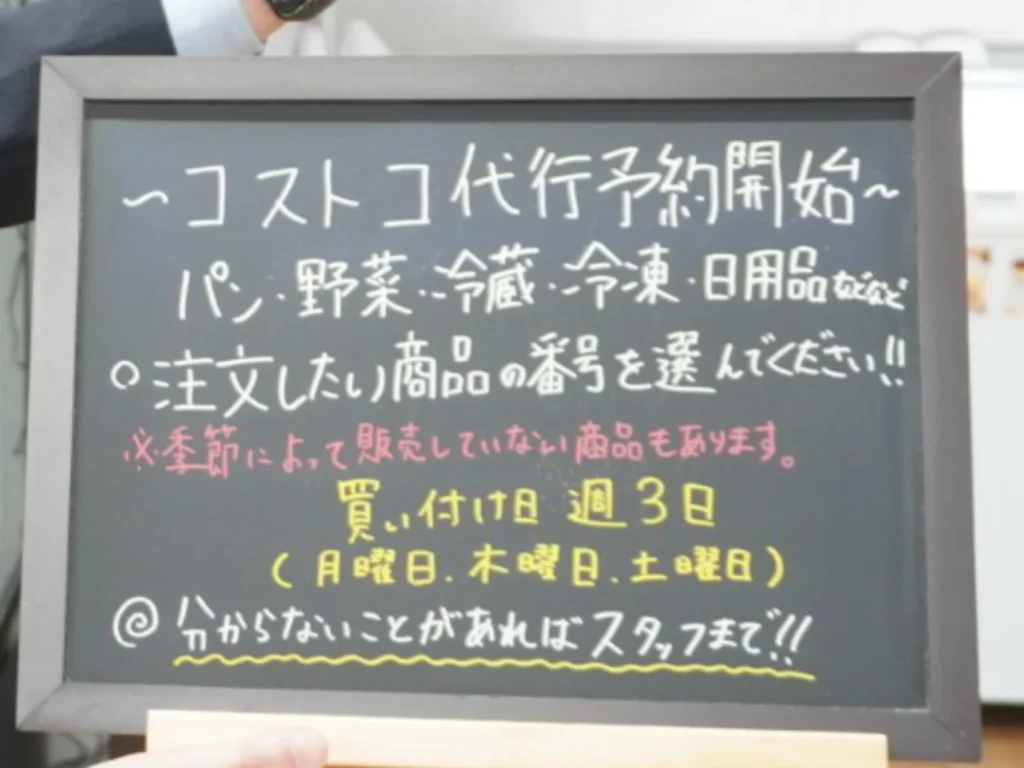 ～コストコ代行予約開始～
パン・野菜・冷蔵・冷凍・日用品などなど
○注文したい商品の番号を選んでください!!
※季節によって販売していない商品もあります。
買い付け日 週3日
(月曜日、木曜日、土曜日)
◎分からないことがあればスタッフまで!!